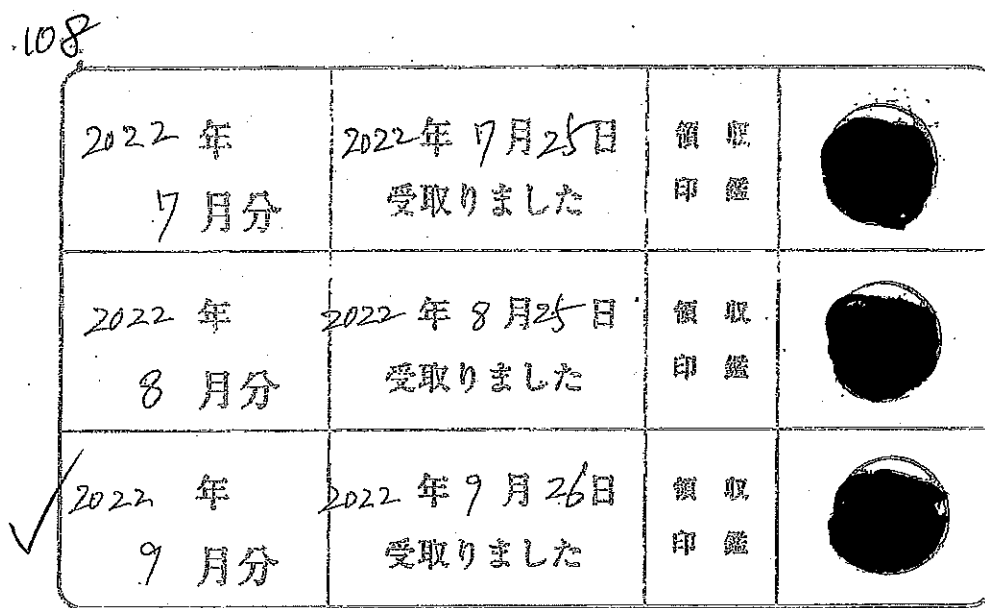 108
2022 年
7 月分
2022年 7月25日
受取りました
領 収
印 鑑
2022 年
8 月分
2022 年 8月25日
受取りました
領 収
印 鑑
2022 年
9 月分
2022 年 9月 26日
受取りました
領 収
印 鑑